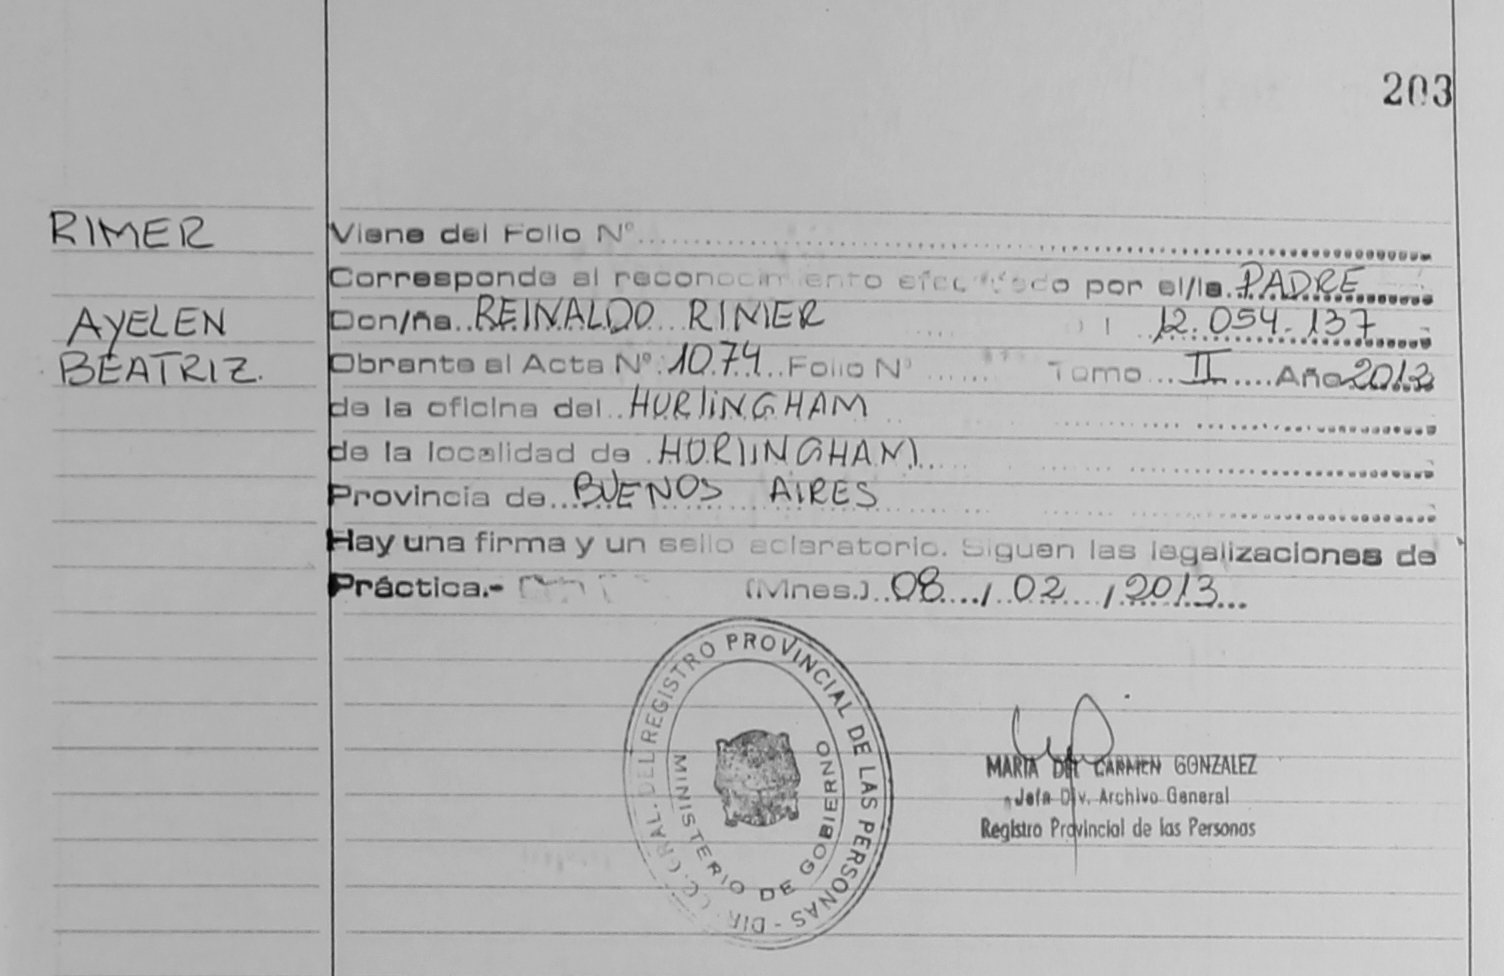 203
RIMER
AYELEN
BEATRIZ.
Viene del Folio Nº
Corresponde al reconocimiento efectuado por el/la PADRE
Don/ña REINALDO RIMER D I 12.054.137
Obrante al Acta Nº 1074 Folio Nº Tomo II Año 2012
de la oficina del HURLINGHAM
de la localidad de HURLINGHAM
Provincia de BUENOS AIRES
Hay una firma y un sello aclaratorio. Siguen las legalizaciones de
Práctica.- (Mnes.) 08 / 02 / 2013
GRAL. DEL REGISTRO PROVINCIAL DE LAS PERSONAS - DIR
MINISTERIO DE GOBIERNO
MARIA DEL CARMEN GONZALEZ
Jefa Div. Archivo General
Registro Provincial de las Personas